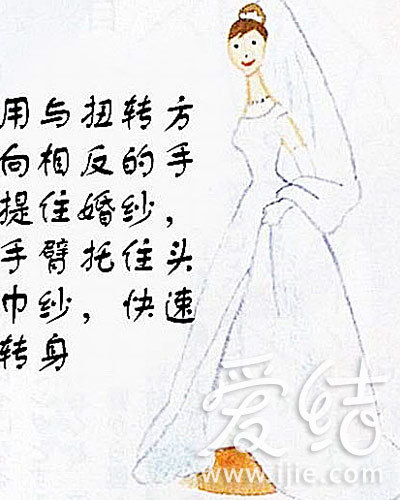 用与扭转方
向相反的手
提住婚纱，
手臂托住头
巾纱，快速
转身
爱结
www.ijie.com